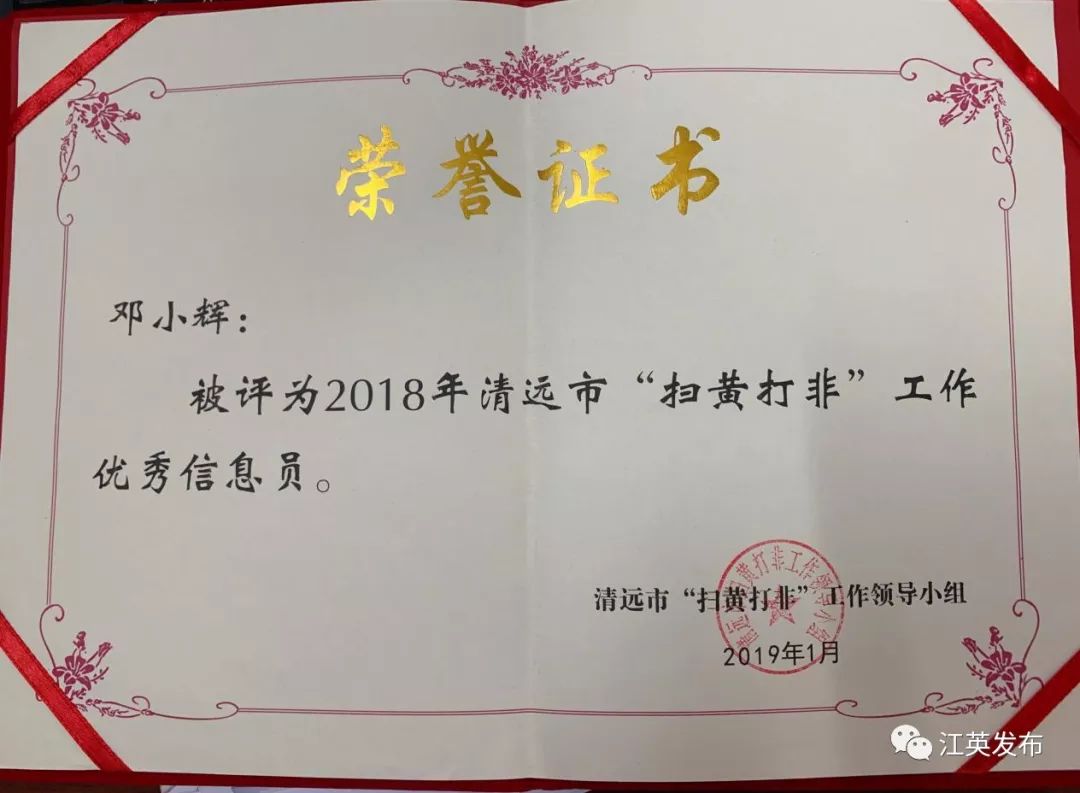 荣誉证书
邓小辉：
被评为2018年清远市“扫黄打非”工作
优秀信息员。
清远市“扫黄打非”工作领导小组
清远市扫黄打非工作领导小组
2019年1月
江英发布